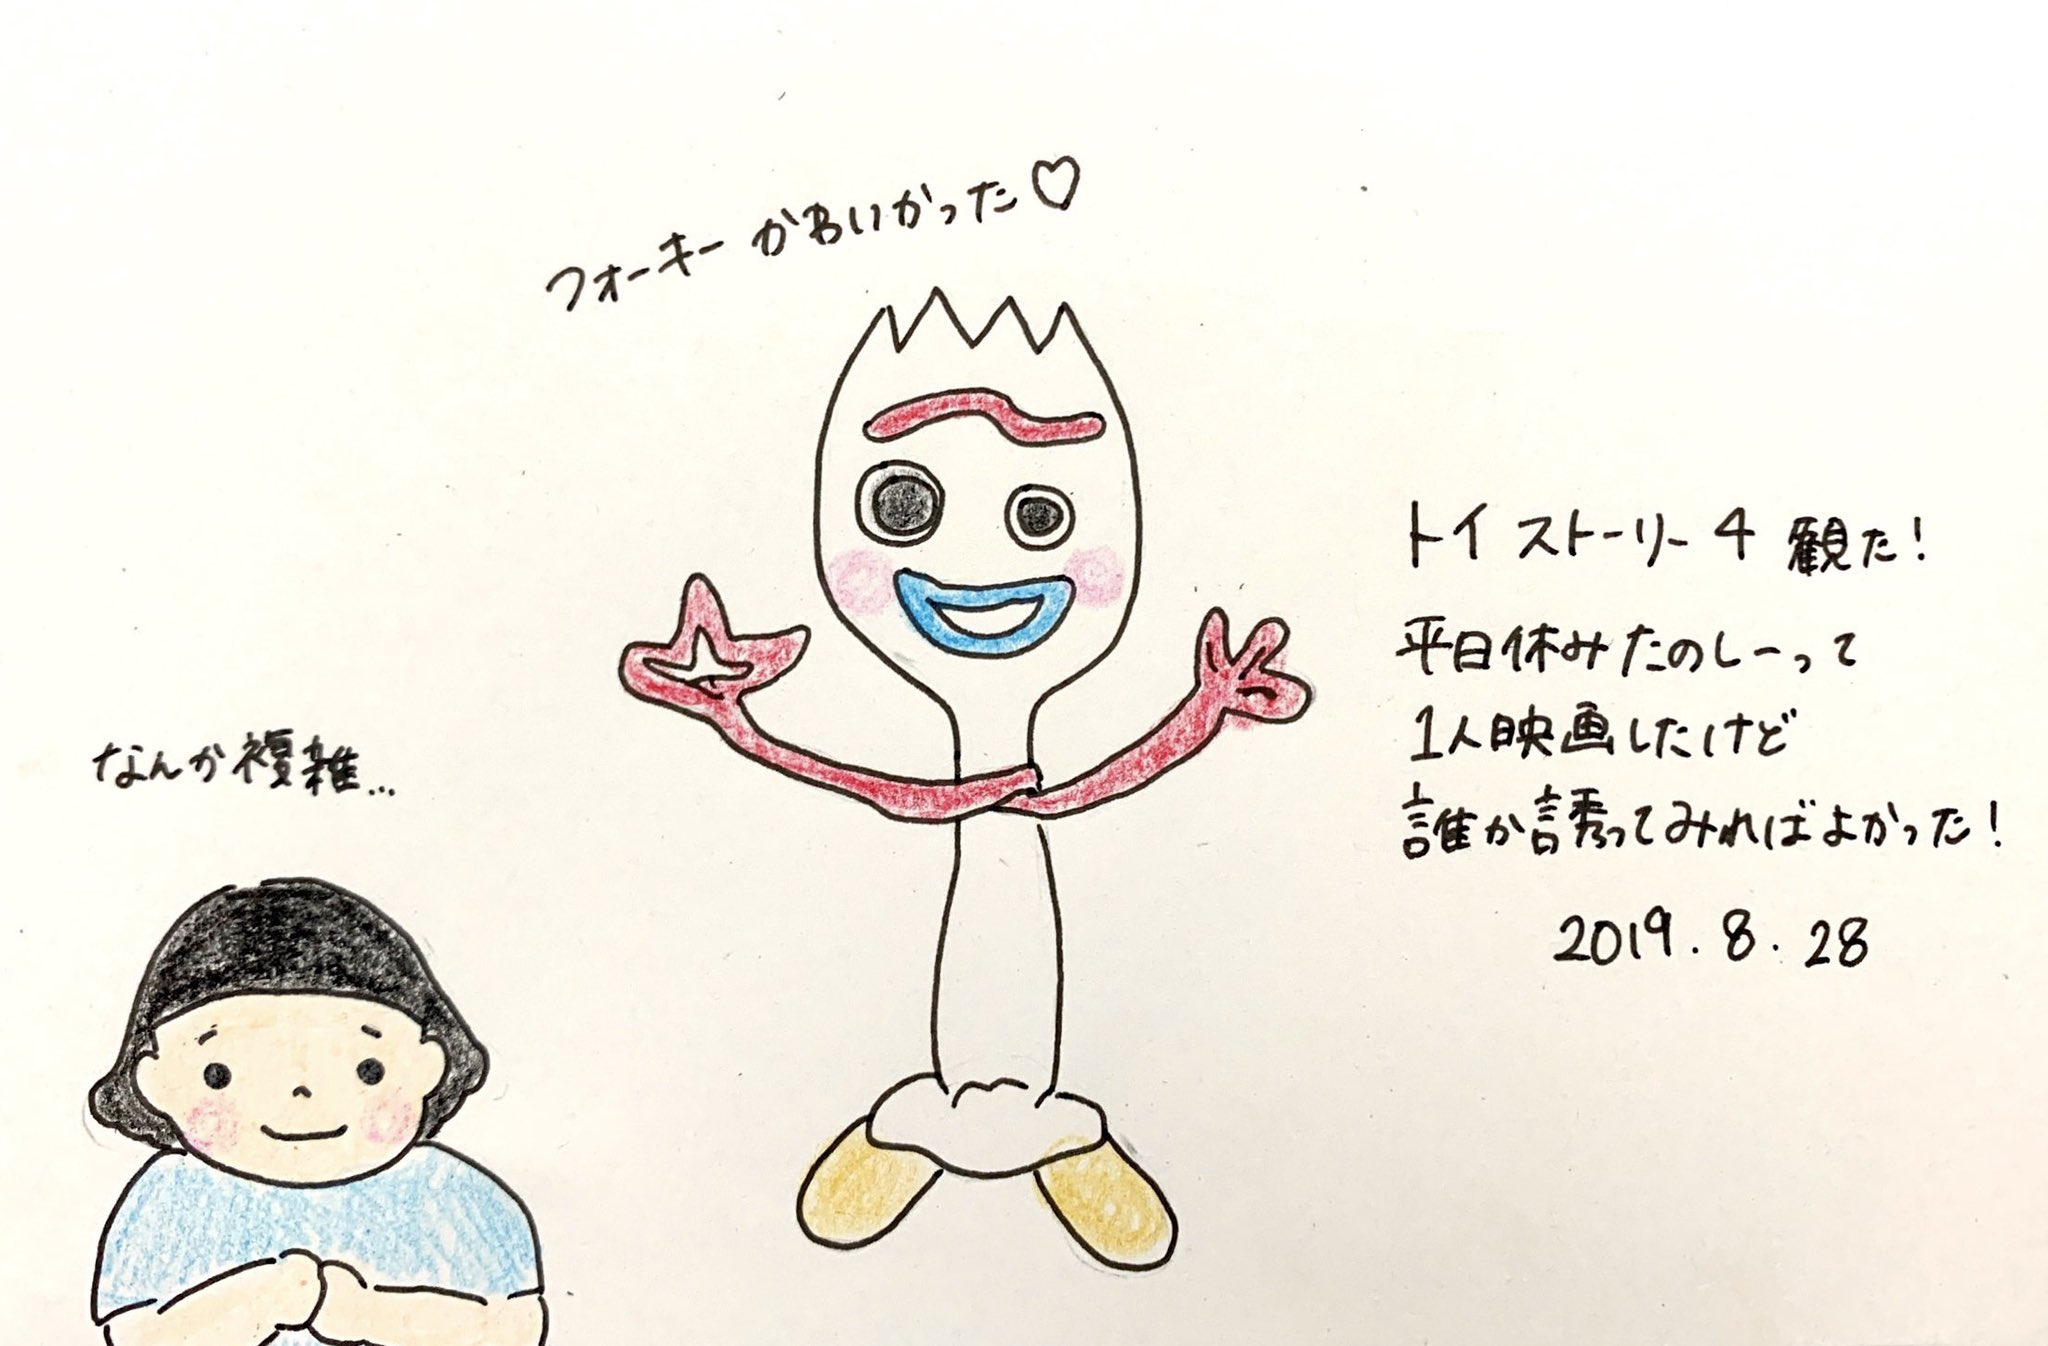 フォーキーかわいかった♡
トイストーリー4 観た!
平日休みたのしーって
1人映画したけど
誰か誘ってみればよかった!
2019.8.28
なんか複雑...